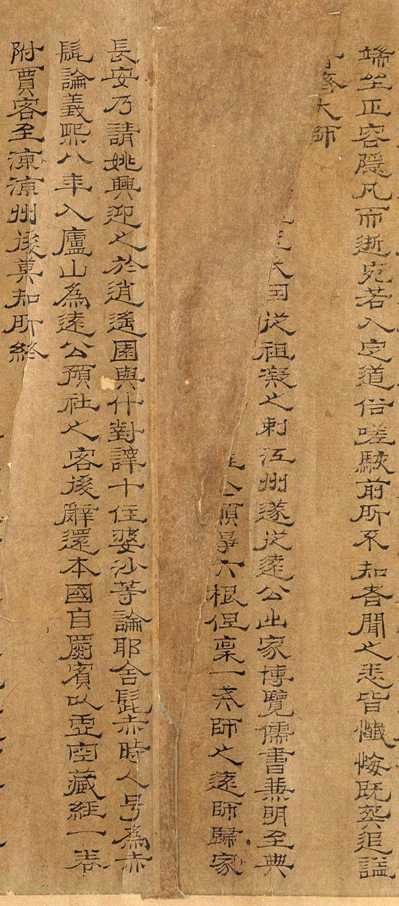 端坐正容隱几而逝宛若入定道俗嗟駭前所不知者聞之悉皆懺悔既葬追謚
大師
從祖凝之刺江州遂從遠公出家博覽儒書兼明至典
六根但稟一
師之遠師歸家
長安乃請姚興迎之於逍遙園與什對譯十住婆沙等論耶舍髭赤時人号為赤
髭論義熙八年入廬山為遠公預社之客後辭還本國自罽賓以虛空藏經一卷
附賈客至涼州後莫知所終